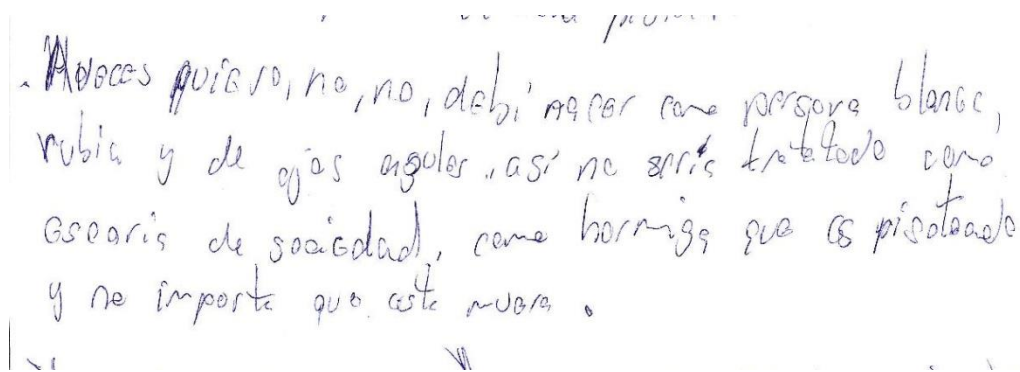 . Aveces quiero, no, no, debí nacer como persona blanca,
rubia y de ojos azules, así no sería tratatado como
escoria de sociedad, como hormiga que es pisoteada
y no importa que esta muera.